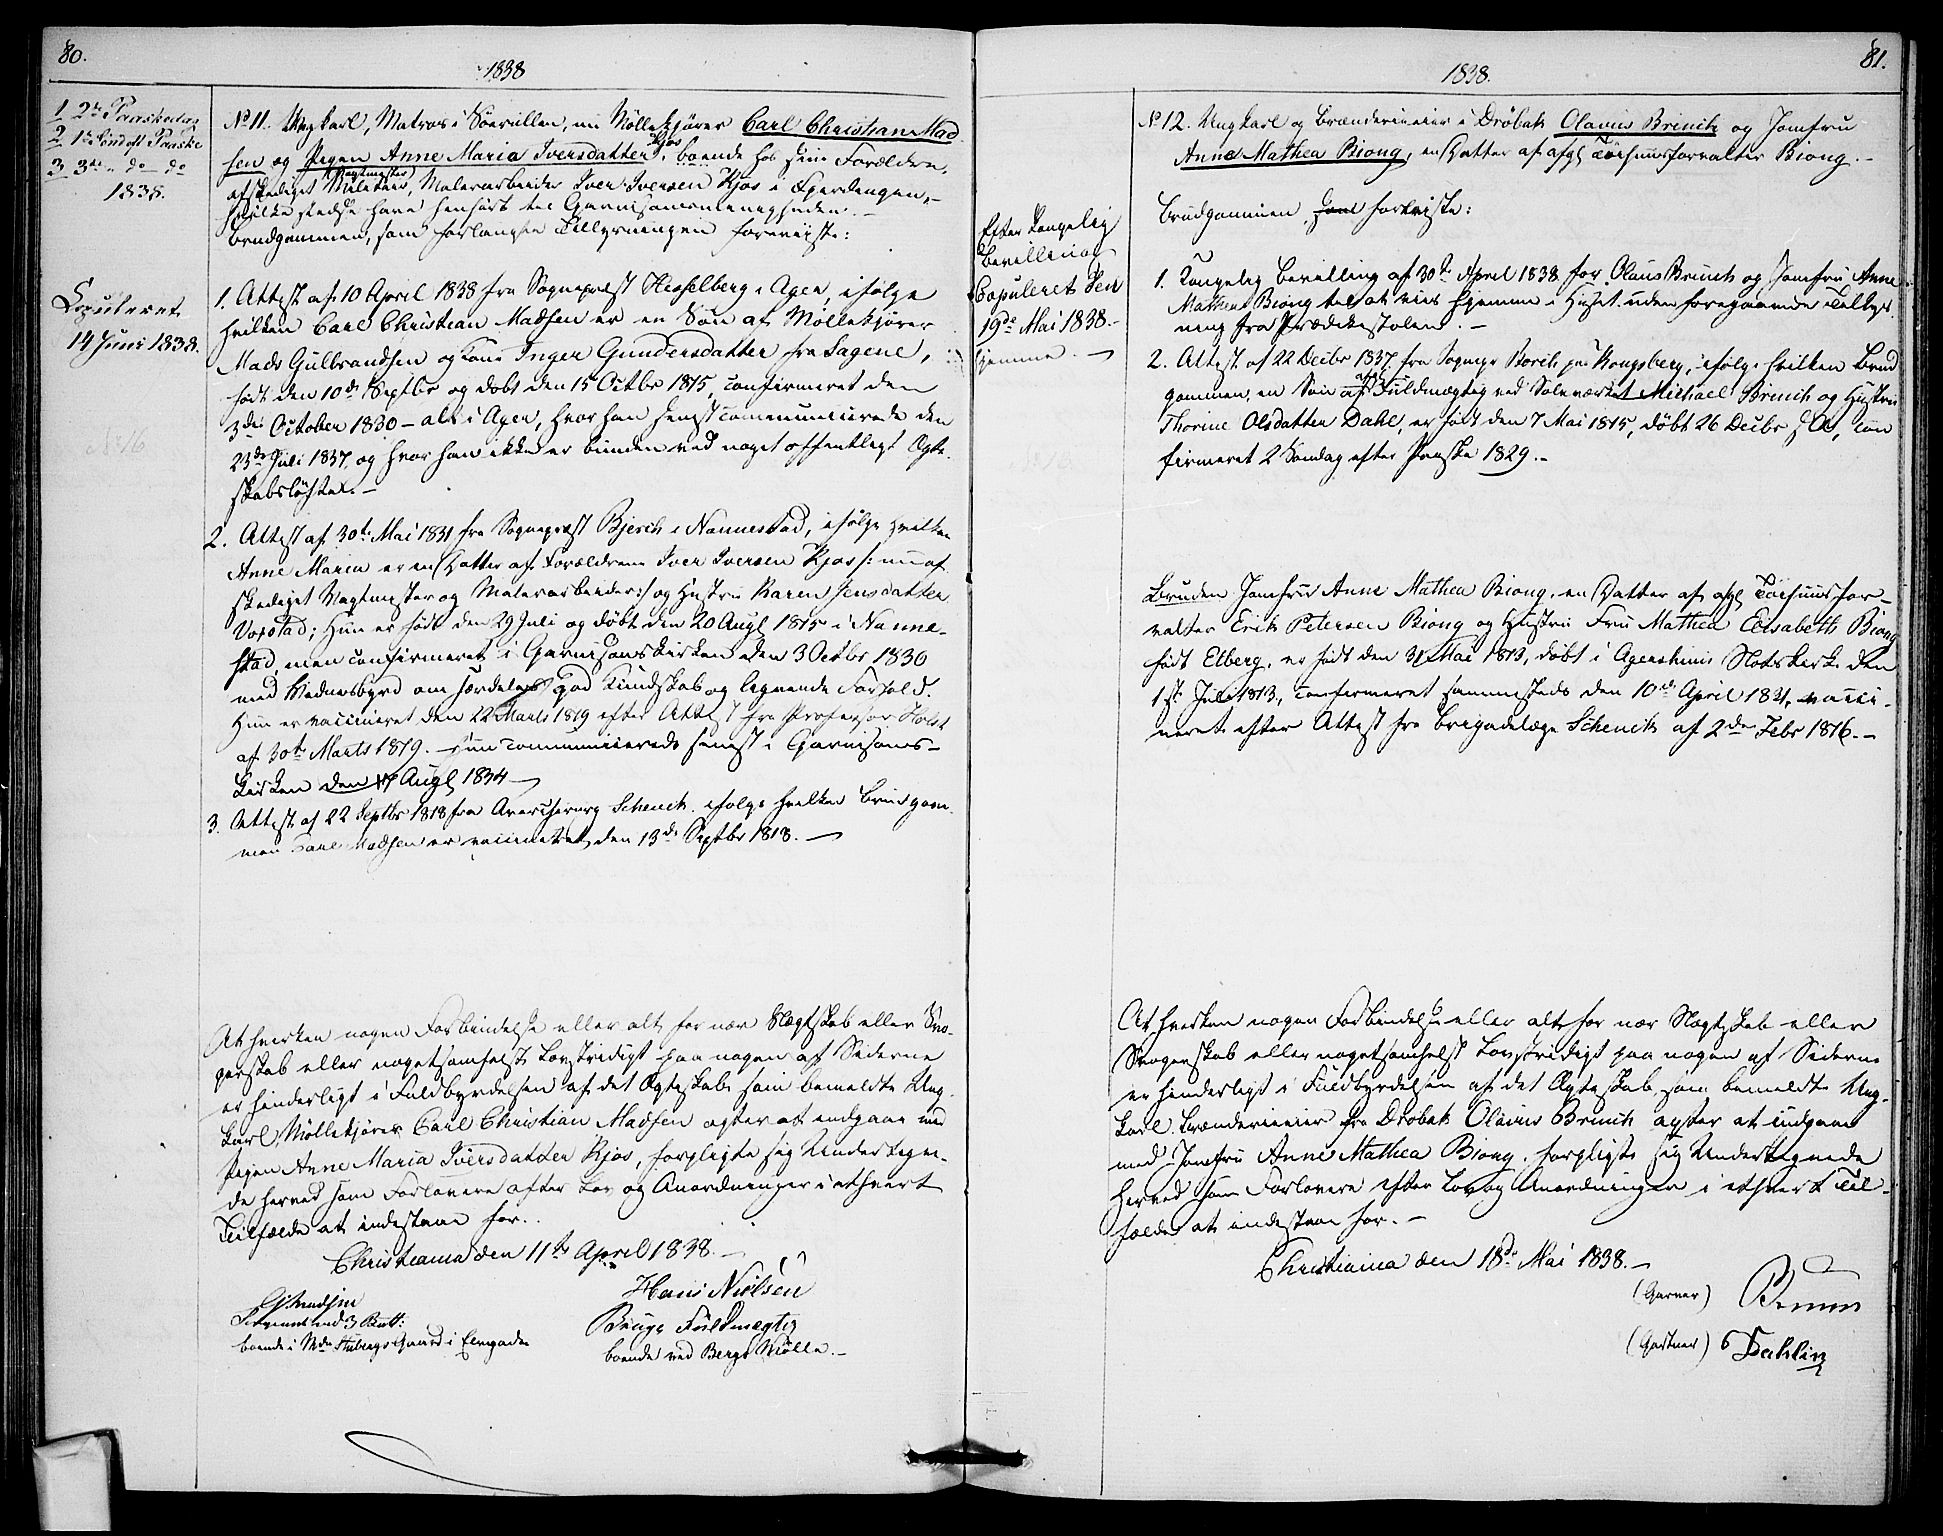 80.
1838
1 2den Paaskedag
2 1ste Sønd eft Paaske
3 3die " do - do
1838.
Copuleret
14 Juni 1838.
No 11. Ungkarl, Matros i Søerullen, nu Møllekjører Carl Christian Mad
sen og Pigen Anne Maria Iversdatter Kjos, boende hos sine Forældre,
afskediget Vagtmester, Malerarbeider Iver Iversen Kjos i Fjerdingen,-
hvilke stedse have henhørt til Garnisonsmenigheden.-
Brudgommen, som forlangte Tillysningen foreviiste:
1. Attest af 10 April 1838 fra Sognepræst Hesselberg i Ager, ifølge
hvilken Carl Christian Madsen er en Søn af Møllekjører
Mads Gulbrandsen og Kone Inger Gundersdatter fra Sagene,
født den 10de Septbr og døbt den 15 Octbr 1815, confirmeret den
3die October 1830 - alt i Ager, hvor han senest communicerede den
23de Juli 1837, og hvor han ikke er bunden ved noget offentligt Ægte-
skabsløfte.-
2. Attest af 30te Mai 1831 fra Sognepræst Bjerch i Nannestad, ifølge hvilken
Anne Maria er en Datter af Forældrene Iver Iversen Kjos /: nu af
skediget Vagtmester og Malerarbeider :/ og Hustru Karen Jensdatter
Vopstad; Hun er født den 29 Juli og døbt den 20 Augt 1815 i Nanne-
stad, men confirmeret i Garnisonskirken den 3 Octbr 1830
med Vidnesbyrd om særdeles god Kundskab og lignende Forhold.
Hun er vaccineret den 22 Marts 1819 efter Attest fra Professor Holst
af 30te Marts 1819. - Hun communicerede senest i Garnisons-
kirken den 17 Augt 1834 -
3. Attest af 22 Septbr 1818 fra Overchirurg Schenck, ifølge hvilken Brudgom
men Carl Madsen er vaccineret den 13de Septbr 1818. -
At hverken nogen Forbindelse eller alt for nær Slægtskab eller Svo-
gerskab eller nogetsomhelst Lovstridigt paa nogen af Siderne
er hinderligt i Fuldbyrdelsen af det Ægteskab som bemeldte Ung-
karl, Møllekjører Carl Christian Madsen agter at indgaae med
Pigen Anne Maria Iversdatter Kjos, forpligte sig Undertegne-
de herved som Forlovere efter Lov og Anordninger i ethvert
Tilfælde at indestaae for.
Christiania den 11te April 1838. -
Hans Nielsen
Bruge Fuldmægtig
boende ved Bergs Mølle. -
boende i Gaard i Elvegaden
81.
1838.
Efter kongelig
Bevilling
Copuleret den
19de Mai 1838.-
hjemme. -
No 12. Ungkarl og Brænderieier i Drøbak Olavus Brinch og Jomfru
Anne Mathea Biong, en Datter af afg. Tøihuusforvalter Biong. -
Brudgommen, foreviste:
1. Kongelig Bevilling af 30te April 1838 for Olaus Brinch og Jomfru Anne
Mathea Biong til at vies hjemme i Huset uden foregaaende Tillys
ning fra Prædikestolen. -
2. Attest af 22 Decbr 1837 fra Sognepr Borch paa Kongsberg, ifølge hvilken Brud
gommen, en Søn af afg. Fuldmægtig ved Sølvværket Michael Brinch og Hustru
Thorine Olsdatter Dahl, er født den 7 Mai 1815, døbt 26 Decbr s. A., con
firmeret 2 Søndag efter Paaske 1829. -
Bruden Jomfru Anne Mathea Biong, en Datter af afg. Tøihuusfor-
valter Erik Petersen Biong og Hustru Fru Mathea Elisabeth Biong
født Elberg, er født den 31 Mai 1813, døbt i Agershuus Slotskirke den
1ste Juli 1813, confirmeret sammesteds den 10de April 1831, vacci-
neret efter Attest fra Brigadelæge Schenck af 2den Febr 1816. -
At hverken nogen Forbindelse eller alt for nær Slægtskab eller
Svogerskab eller nogetsomhelst Lovstridigt paa nogen af Siderne
er hinderligt i Fuldbyrdelsen af det Ægteskab, som bemeldte Ung-
karl Brænderieier fra Drøbak Olavus Brinch agter at indgaae
med Jomfru Anne Mathea Biong, forpligte sig Undertegnede
herved som Forlovere efter Lov og Anordninger i ethvert Til-
fælde at indestaae for. -
Christiania den 18de Mai 1838. -
(Garver) Bruun
(Gartner) Dahlin